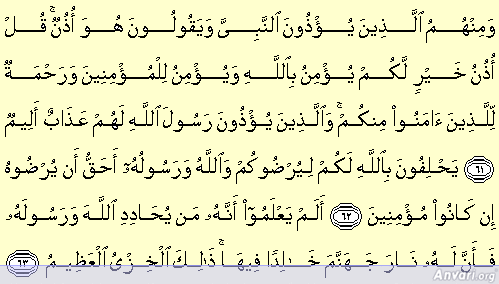 وَمِنْهُمُ ٱلَّذِينَ يُؤْذُونَ ٱلنَّبِىَّ وَيَقُولُونَ هُوَ أُذُنٌ ۚ قُلْ
أُذُنُ خَيْرٍ لَّكُمْ يُؤْمِنُ بِٱللَّهِ وَيُؤْمِنُ لِلْمُؤْمِنِينَ وَرَحْمَةٌ
لِّلَّذِينَ ءَامَنُوا۟ مِنكُمْ ۚ وَٱلَّذِينَ يُؤْذُونَ رَسُولَ ٱللَّهِ لَهُمْ عَذَابٌ أَلِيمٌ
٦١ يَحْلِفُونَ بِٱللَّهِ لَكُمْ لِيُرْضُوكُمْ وَٱللَّهُ وَرَسُولُهُۥٓ أَحَقُّ أَن يُرْضُوهُ
إِن كَانُوا۟ مُؤْمِنِينَ ٦٢ أَلَمْ يَعْلَمُوٓا۟ أَنَّهُۥ مَن يُحَادِدِ ٱللَّهَ وَرَسُولَهُۥ
فَأَنَّ لَهُۥ نَارَ جَهَنَّمَ خَـٰلِدًا فِيهَا ۚ ذَٰلِكَ ٱلْخِزْىُ ٱلْعَظِيمُ ٦٣
Anvari.org